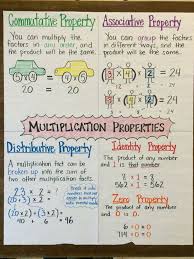 Commutative Property
You can multiply the
factors in any order, and
the product will be the
same.
Associative Property
You can group the factors
in different ways, and the
product will be the same.
= 24
= 24
MULTIPLICATION PROPERTIES
Distributive Property
A multiplication fact can be
broken up into the sum of
two other multiplication facts.
Identity Property
The product of any number
and 1 is that number.
8 x 1 = 8
562 x 1 = 562
Zero Property
The product of any number
and 0 is 0.
6 x 0 = 0